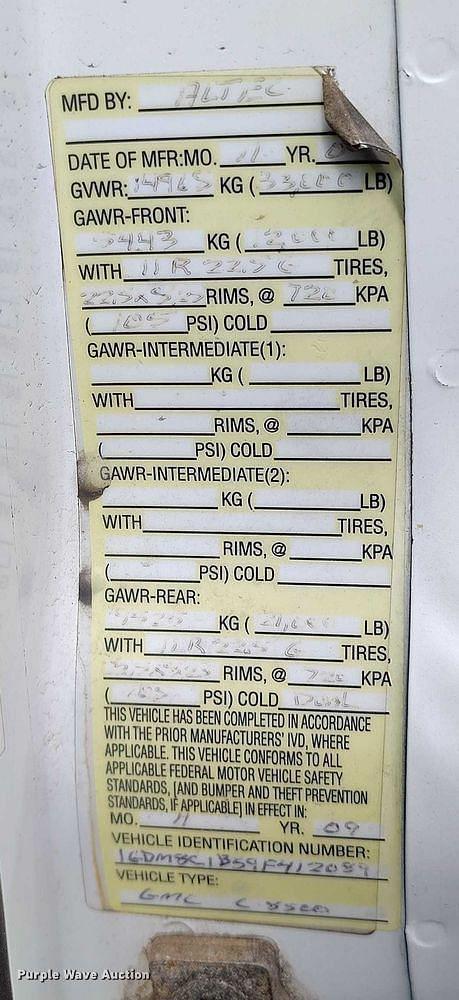 MFD BY: ALTEC
DATE OF MFR:MO. 11 YR.
GVWR: 14965 KG ( 33,000 LB)
GAWR-FRONT:
5443 KG ( 12,000 LB)
WITH 11R 22.5 G TIRES,
RIMS, @ 720 KPA
( 105 PSI) COLD
GAWR-INTERMEDIATE(1):
KG ( LB)
WITH TIRES,
RIMS, @ KPA
( PSI) COLD
GAWR-INTERMEDIATE(2):
KG ( LB)
WITH TIRES,
RIMS, @ KPA
( PSI) COLD
GAWR-REAR:
KG ( 21,000 LB)
WITH 11R 22.5 G TIRES,
RIMS, @ 720 KPA
( 105 PSI) COLD DUAL
THIS VEHICLE HAS BEEN COMPLETED IN ACCORDANCE
WITH THE PRIOR MANUFACTURERS' IVD, WHERE
APPLICABLE. THIS VEHICLE CONFORMS TO ALL
APPLICABLE FEDERAL MOTOR VEHICLE SAFETY
STANDARDS, [AND BUMPER AND THEFT PREVENTION
STANDARDS, IF APPLICABLE] IN EFFECT IN:
MO. 11 YR. 09
VEHICLE IDENTIFICATION NUMBER:
VEHICLE TYPE:
GMC C 8500
Purple Wave Auction